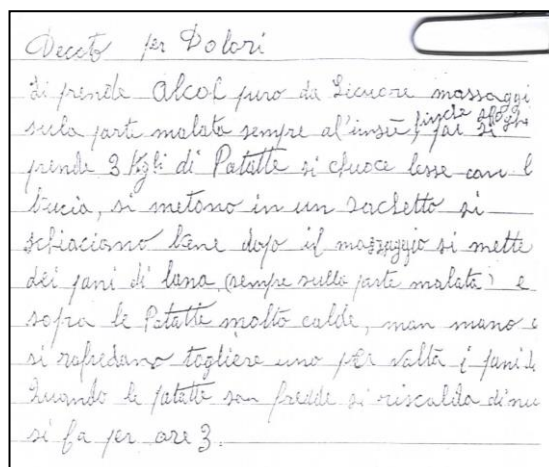 Decoto per Dolori
Si prende alcol puro da Licuore massaggi
sula parte malata sempre al'insù finchè poi si
prende 3 Kgli di Patatte si chuoce lesse con l
bucia, si metono in un sachetto si
schiaciano bene dopo il massaggio si mette
dei pani di lana, (sempre sulla parte malata) e
sopra le Patatte molto calde, man mano c
si rafredano togliere uno per valta i pani
Quando le patatte son fredde si riscalda di nu
si fa per ore 3.